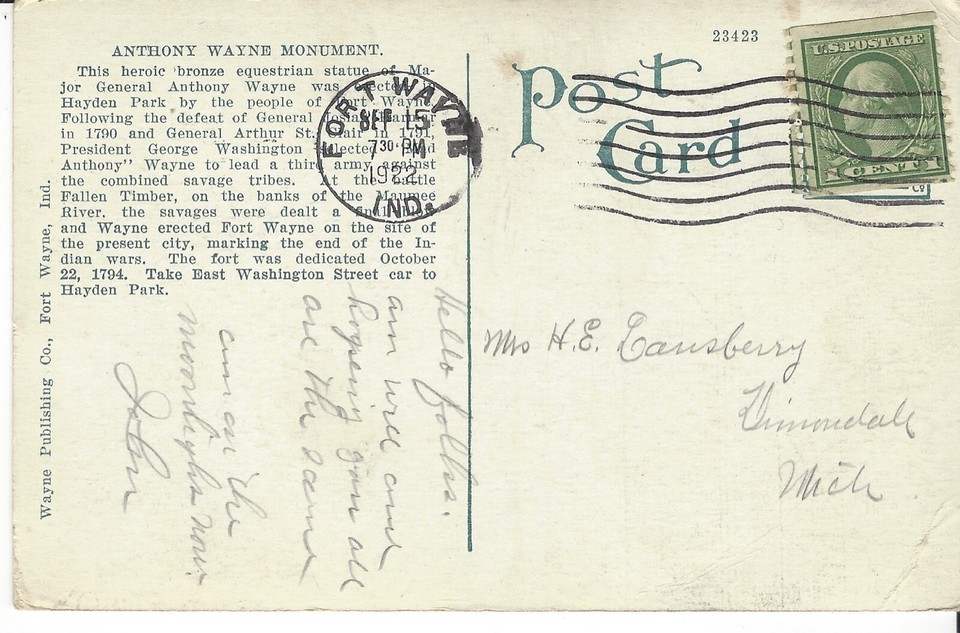 ANTHONY WAYNE MONUMENT.
This heroic bronze equestrian statue of Ma-
jor General Anthony Wayne was erected in
Hayden Park by the people of Fort Wayne.
Following the defeat of General Josiah Harmar
in 1790 and General Arthur St. Clair in 1791,
President George Washington selected "Mad
Anthony" Wayne to lead a third army against
the combined savage tribes. At the Battle
Fallen Timber, on the banks of the Maumee
River, the savages were dealt a
and Wayne erected Fort Wayne on the site of
the present city, marking the end of the In-
dian wars. The fort was dedicated October
22, 1794. Take East Washington Street car to
Hayden Park.
Wayne Publishing Co., Fort Wayne, Ind.
FORT WAYNE
SEP 15
7 30 PM
1922
IND.
23423
Post
Card
U.S. POSTAGE
1 CENT 1
Co
Hello folks.
am well and
hoping you all
are the same
am on the
moonlight now
John
Mrs H.E. Lansberry
Dimondale
Mich